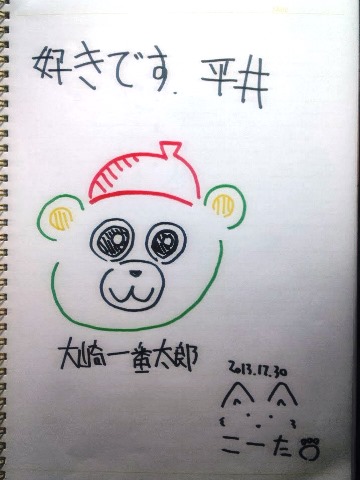 好きです．平井
大崎一番太郎
2013.12.30
こーた